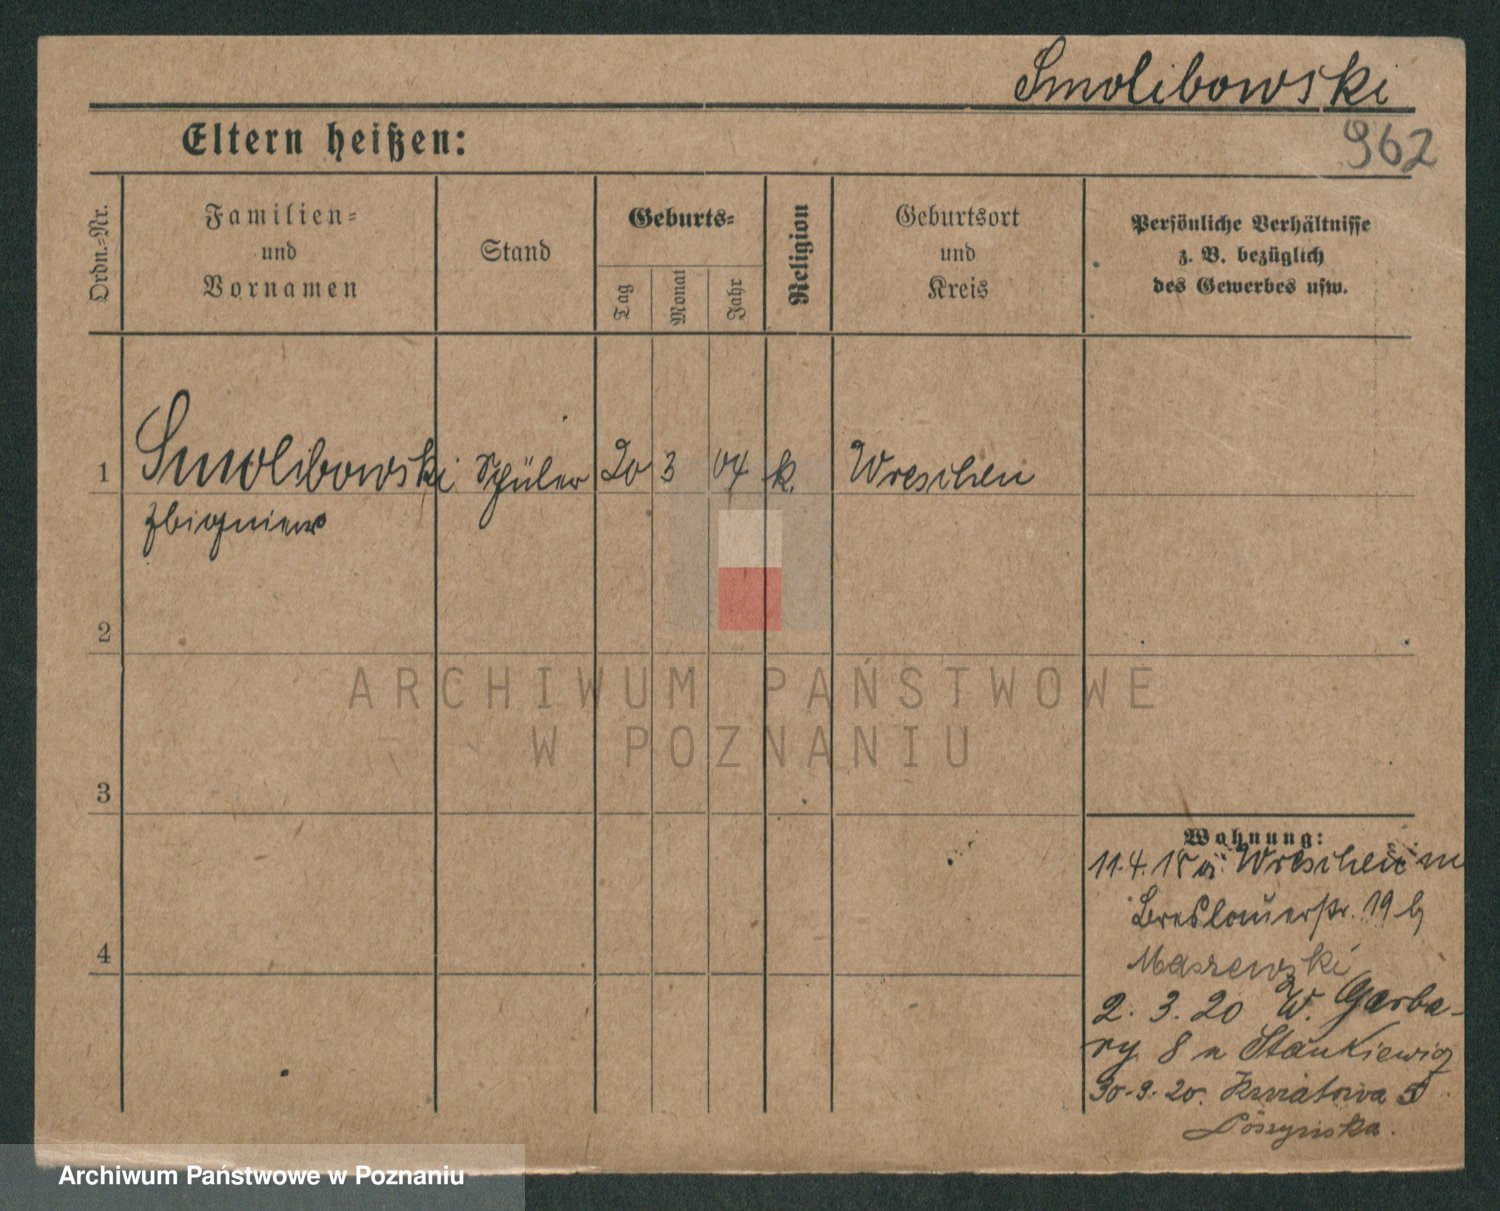 Smolibowski
Eltern heißen:
962
Ordn.=Nr.
Familien=
und
Vornamen
Stand
Geburts=
Tag
Monat
Jahr
Religion
Geburtsort
und
Kreis
Persönliche Verhältnisse
z. B. bezüglich
des Gewerbes usw.
1
Smolibowski Schüler 20 3 04 k. Wreschen
Zbigniew
2
3
4
Wohnung:
11.4.18 Wreschen
Breslauerstr. 19 b
Maszewski
2. 3. 20 W. Garba-
ry 8 Stankiewicz
30.9.20. Kwiatowa 5
ARCHIWUM PAŃSTWOWE
W POZNANIU
Archiwum Państwowe w Poznaniu